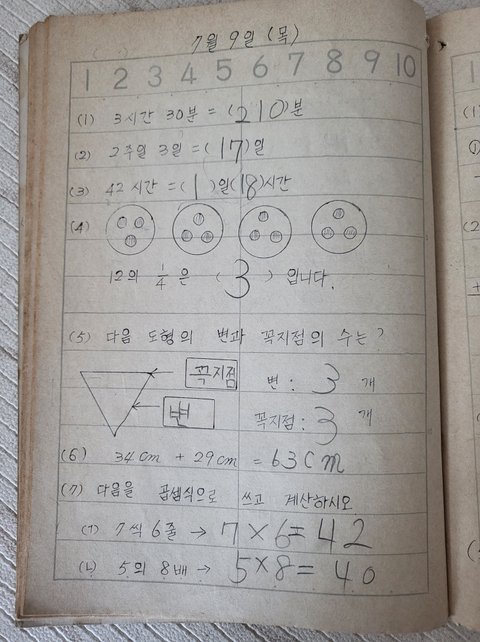 7월 9일 (목)
1 2 3 4 5 6 7 8 9 10
(1) 3시간 30분 = (210)분
(2) 2주일 3일 = (17)일
(3) 42시간 = (1)일(18)시간
(4)
12의 1/4 은 (3) 입니다.
(5) 다음 도형의 변과 꼭지점의 수는?
꼭지점
변 : 3 개
변
꼭지점 : 3 개
(6) 34cm + 29cm = 63cm
(7) 다음을 곱셈식으로 쓰고 계산하시오
(ㄱ) 7씩 6줄 → 7×6=42
(ㄴ) 5의 8배 → 5×8=40